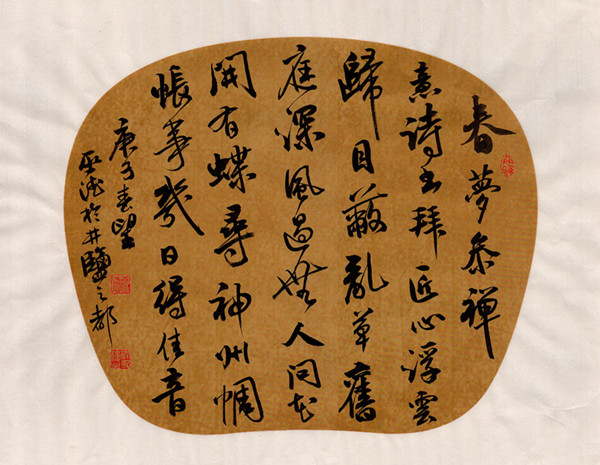 春夢參禪
意詩書拜匠心浮雲
歸目蔽亂草舊
庭深風過無人問花
開有蝶尋神州惆
悵事幾日得佳音
庚子春望
於井鹽之都